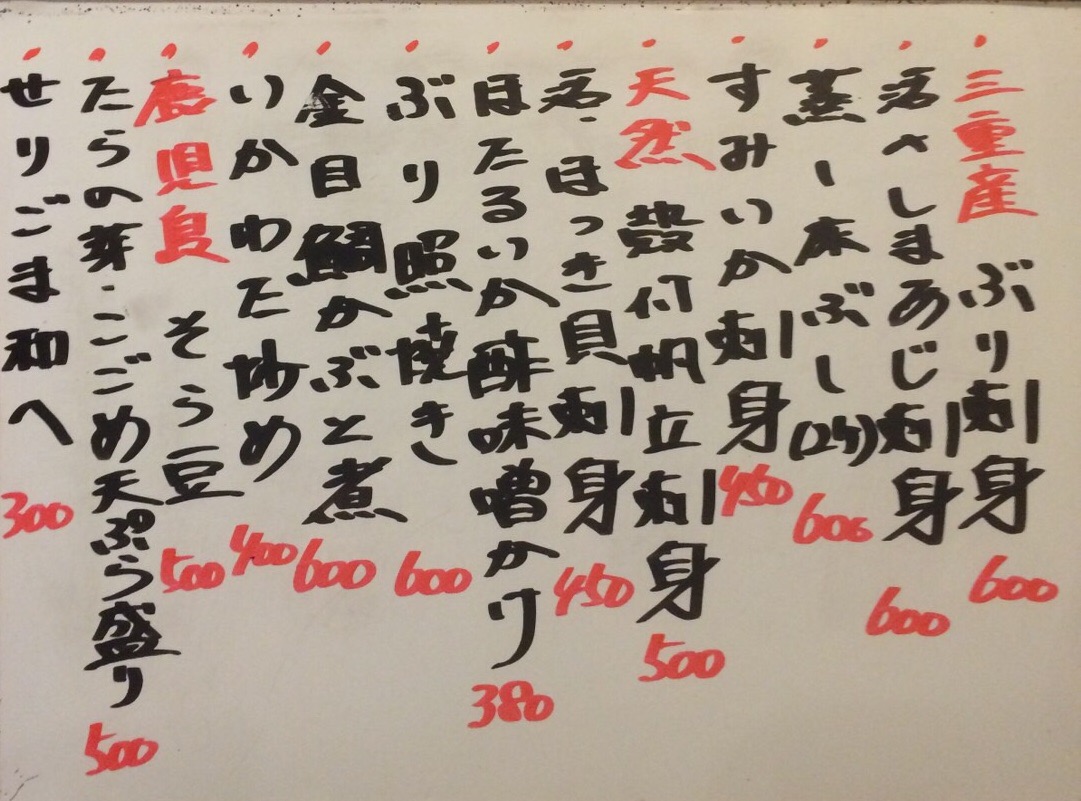 三重産 ぶり刺身 600
活きしまあじ刺身 600
蒸し床ぶし(2ケ) 600
すみいか刺身 450
天然 殻付帆立刺身 500
活・ほっき貝刺身 450
ほたるいか酢味噌かけ 380
ぶり照焼き 600
金目鯛かぶと煮 600
いかわた炒め 400
鹿児島 そら豆 500
たらの芽・こごめ天ぷら盛り 500
せりごま和へ 300